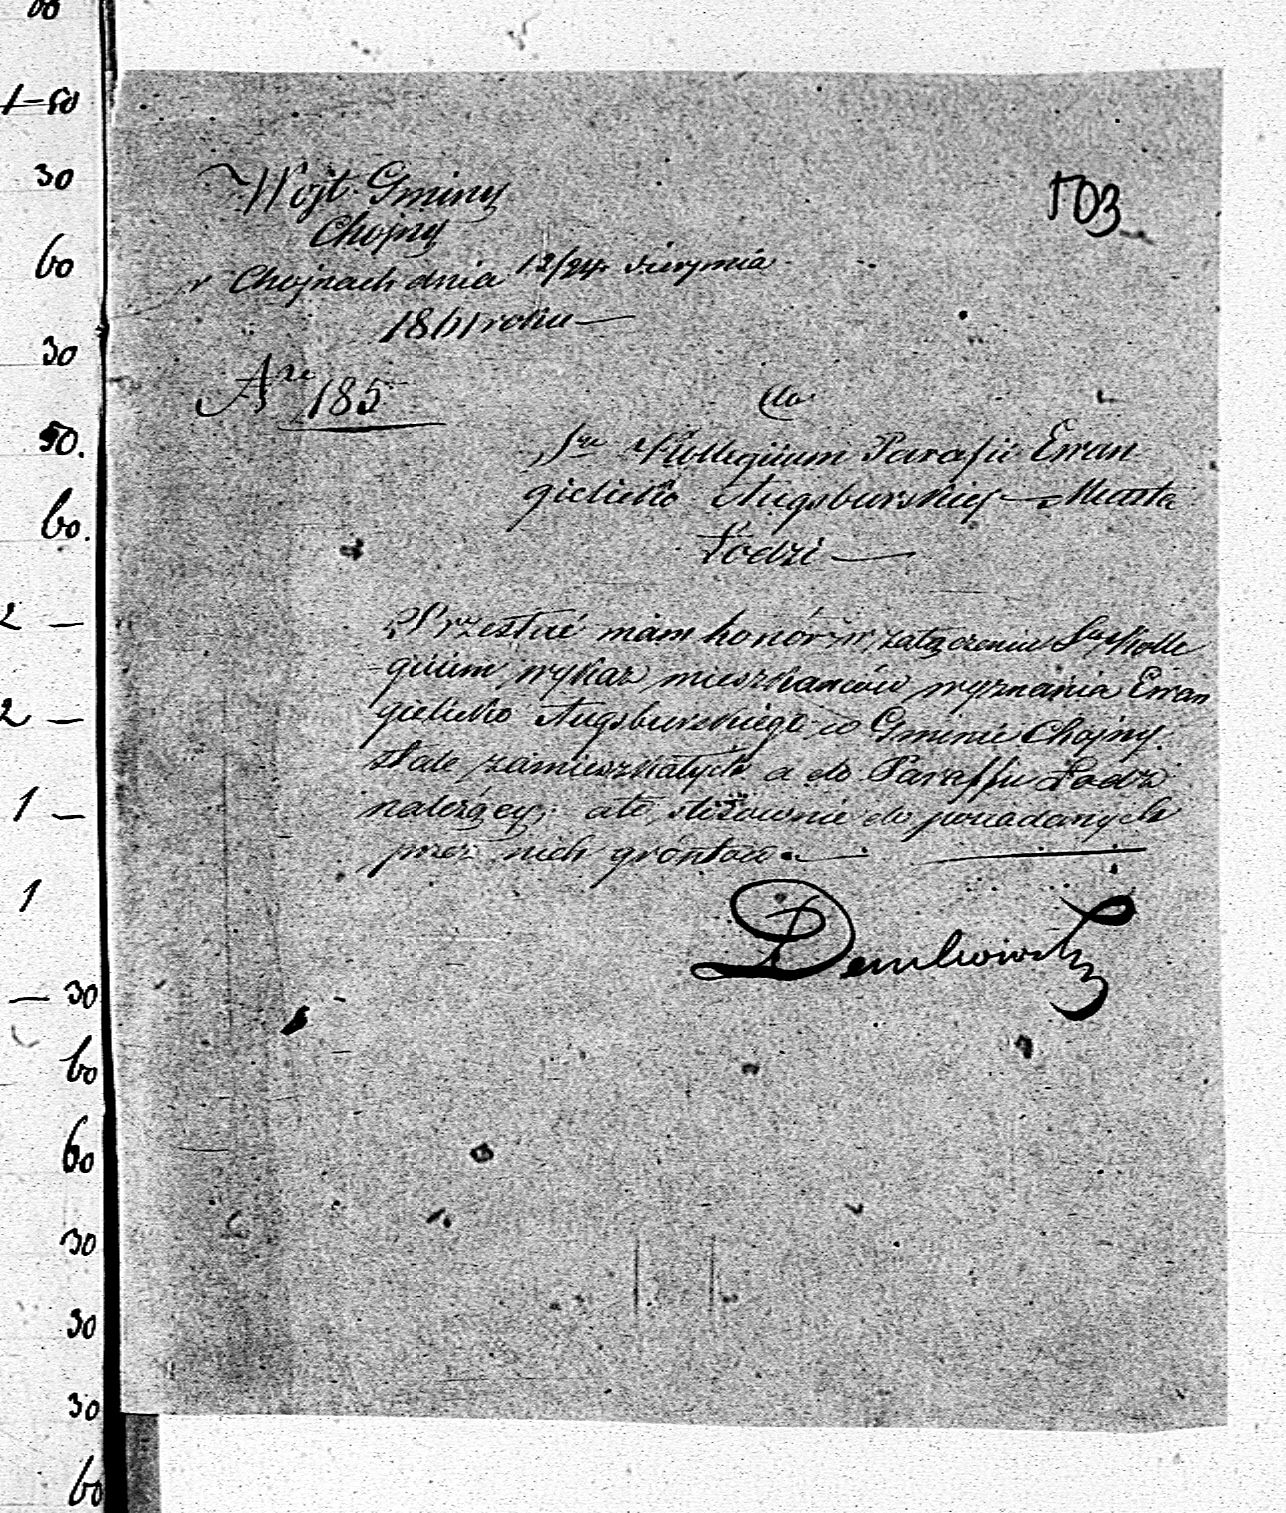 00
1-50
30
60
30
50.
60.
2 —
2 —
1 —
1
— 30
60
60
30
30
30
60
503
Wójt Gminy
Chojny
w Chojnach dnia 12/24 Sierpnia
1861 roku —
Nro 185
do
Kollegiium Parafii Ewan
gielicko Augsburskiej — Miasta
Łodzi —
Przesłać mam honór w załączeniu Kolle
giium wykaz mieszkańców wyznania Ewan
gielicko Augsburskiego w Gminie Chojny
stale zamieszkałych a do Paraffii Łodz
należący, ale stósownie do posiadanych
przez nich gróntów —